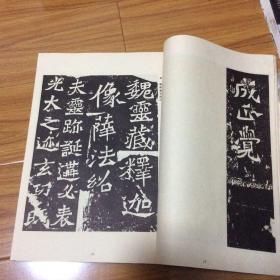 成正覺
魏靈藏釋迦
像薛法紹
夫靈跡誕遘必表
光大之迹玄功既